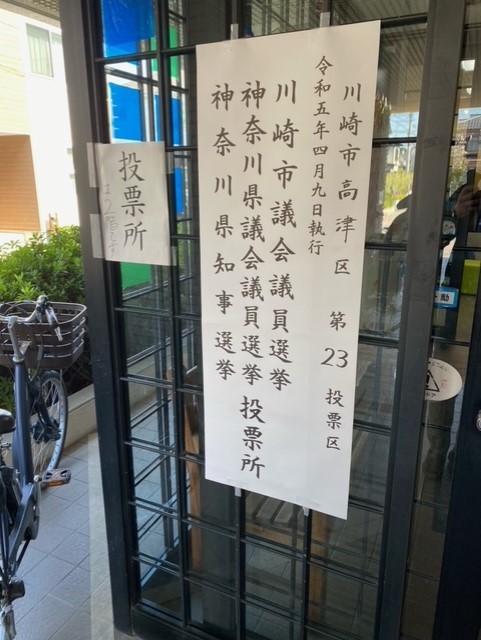 川崎市高津区 第23投票区
令和五年四月九日執行
川崎市議会議員選挙
神奈川県議会議員選挙 投票所
神奈川県知事選挙
投票所
は2階です